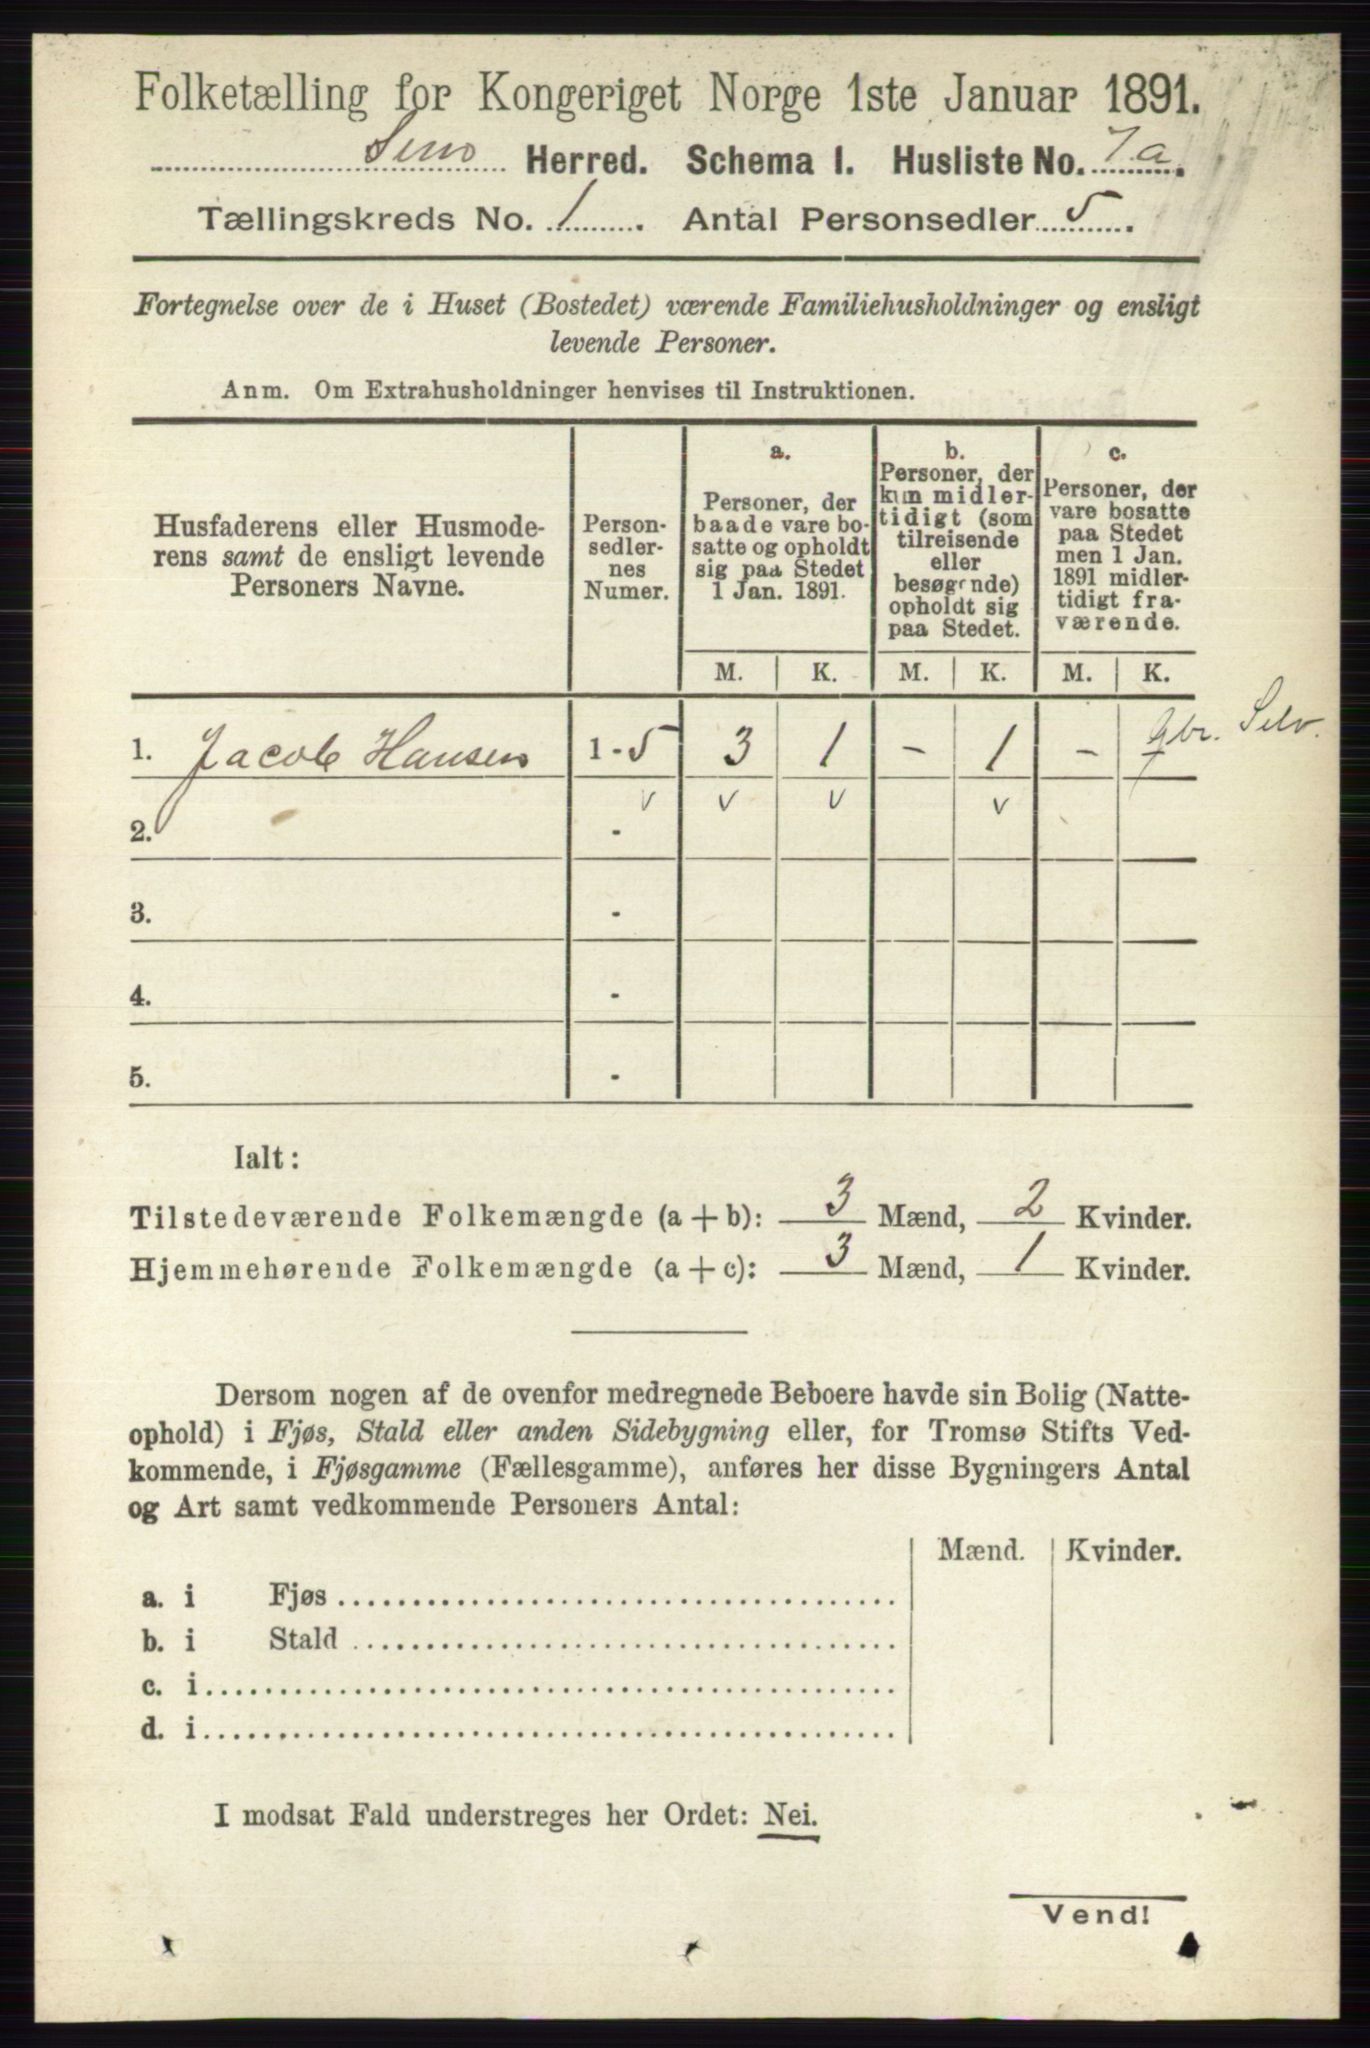 Folketælling for Kongeriget Norge 1ste Januar 1891.
Sem Herred. Schema 1. Husliste No. 7a.
Tællingskreds No. 1. Antal Personsedler 5.
Fortegnelse over de i Huset (Bostedet) værende Familiehusholdninger og ensligt
levende Personer.
Anm. Om Extrahusholdninger henvises til Instruktionen.
Husfaderens eller Husmode-
rens samt de ensligt levende
Personers Navne.
Person-
sedler-
nes
Numer.
a.
Personer, der
baade vare bo-
satte og opholdt
sig paa Stedet
1 Jan. 1891.
b.
Personer, der
kun midler-
tidigt (som
tilreisende
eller
besøgende)
opholdt sig
paa Stedet.
c.
Personer, der
vare bosatte
paa Stedet
men 1 Jan.
1891 midler-
tidigt fra-
værende.
M. K. M. K. M. K.
1. Jacob Hansen 1 - 5 3 1 - 1 - - Gbr. Selv.
v v v v
2. -
3. -
4. -
5. -
Ialt:
Tilstedeværende Folkemængde (a + b): 3 Mænd, 2 Kvinder.
Hjemmehørende Folkemængde (a + c): 3 Mænd, 1 Kvinder.
Dersom nogen af de ovenfor medregnede Beboere havde sin Bolig (Natte-
ophold) i Fjøs, Stald eller anden Sidebygning eller, for Tromsø Stifts Ved-
kommende, i Fjøsgamme (Fællesgamme), anføres her disse Bygningers Antal
og Art samt vedkommende Personers Antal:
Mænd. Kvinder.
a. i Fjøs
b. i Stald
c. i
d. i
I modsat Fald understreges her Ordet: Nei.
Vend!